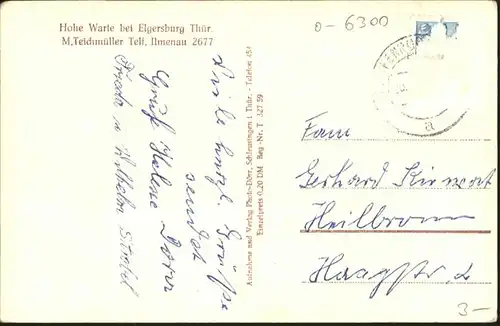 Hohe Warte bei Elgersburg Thür.
M. Teichmüller Telf. Ilmenau 2677
0-6300
Viele herzl. Grüße
sendet
Gruß Helene Dorr
Fryda u Wilhelm Strobel
Aufnahme und Verlag Photo-Dörr, Schleusingen i. Thür. - Telefon 454
Einzelpreis 0,20 DM Reg.-Nr. T 327 59
a
Fam
Gerhard
Heilbronn
Haagstr. 2
3-